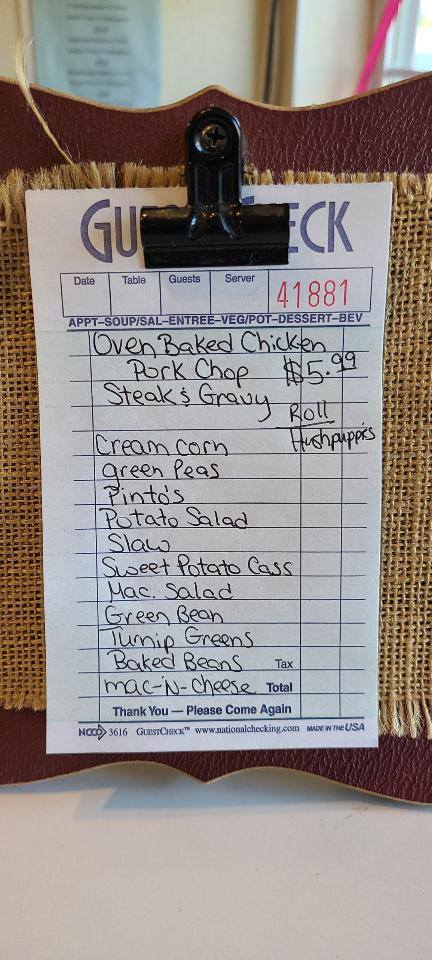 Date Table Guests Server 41881
APPT–SOUP/SAL–ENTREE–VEG/POT–DESSERT–BEV
Oven Baked Chicken
Pork Chop $5.99
Steak & Gravy
Roll
Hushpuppies
Cream corn
green Peas
Pinto's
Potato Salad
Slaw
Sweet Potato Cass
Mac. Salad
Green Bean
Turnip Greens
Baked Beans Tax
mac-N-cheese Total
Thank You — Please Come Again
NCCO 3616 GUESTCHECK™ www.nationalchecking.com MADE IN THE USA